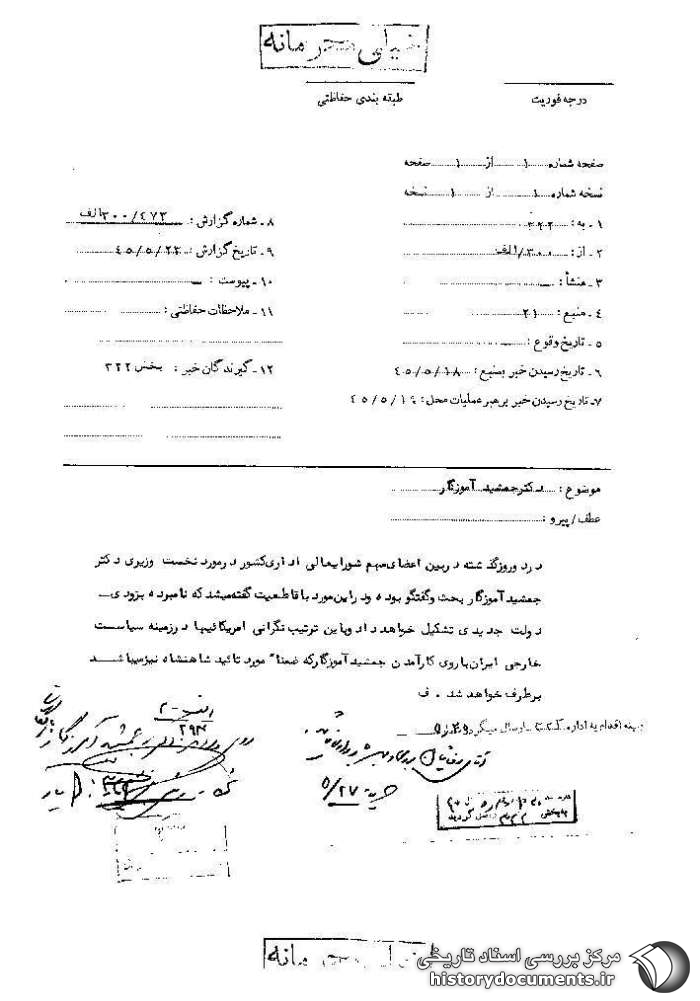 خیلی محرمانه
درجه فوریت
طبقه بندی حفاظتی
صفحه شماره ۱ از ۱ صفحه
نسخه شماره ۱ از ۱ نسخه
۱ـ به: ۳۲۲
۲ـ از: ۳۰۰/الف
۳ـ منشأ: ـ
۴ـ منبع: ۲۱
۵ـ تاریخ وقوع: ـ
۶ـ تاریخ رسیدن خبر بمنبع: ۴۵/۵/۱۸
۷ـ تاریخ رسیدن خبر برهبر عملیات محل: ۴۵/۵/۱۹
۸ـ شماره گزارش: ۳۰۰/۴۷۳الف
۹ـ تاریخ گزارش: ۴۵/۵/۲۳
۱۰ـ پیوست: ـ
۱۱ـ ملاحظات حفاظتی:
۱۲ـ گیرندگان خبر: بخش ۳۲۲
موضوع: دکترجمشید آموزگار
عطف/پیرو:
درد وروزگذشته دربین اعضای مهم شورایعالی اداری کشور درمورد نخست وزیری دکتر
جمشید آموزگار بحث وگفتگو بوده ودراین مورد با قاطعیت گفته میشد که نامبرده بزودی
دولت جدیدی تشکیل خواهد داد وباین ترتیب نگرانی امریکائیها درزمینه سیاست
خارجی ایران با روی کارآمدن جمشید آموزگار که ضمناً مورد تائید شاهنشاه نیزمیباشد
برطرف خواهد شد . ف
جهته اقدام به اداره ارسال میگردد
۲۹۳
جمشید آموزگار
۵/۲۷
خیلی محرمانه
مرکز بررسی اسناد تاریخی
historydocuments.ir